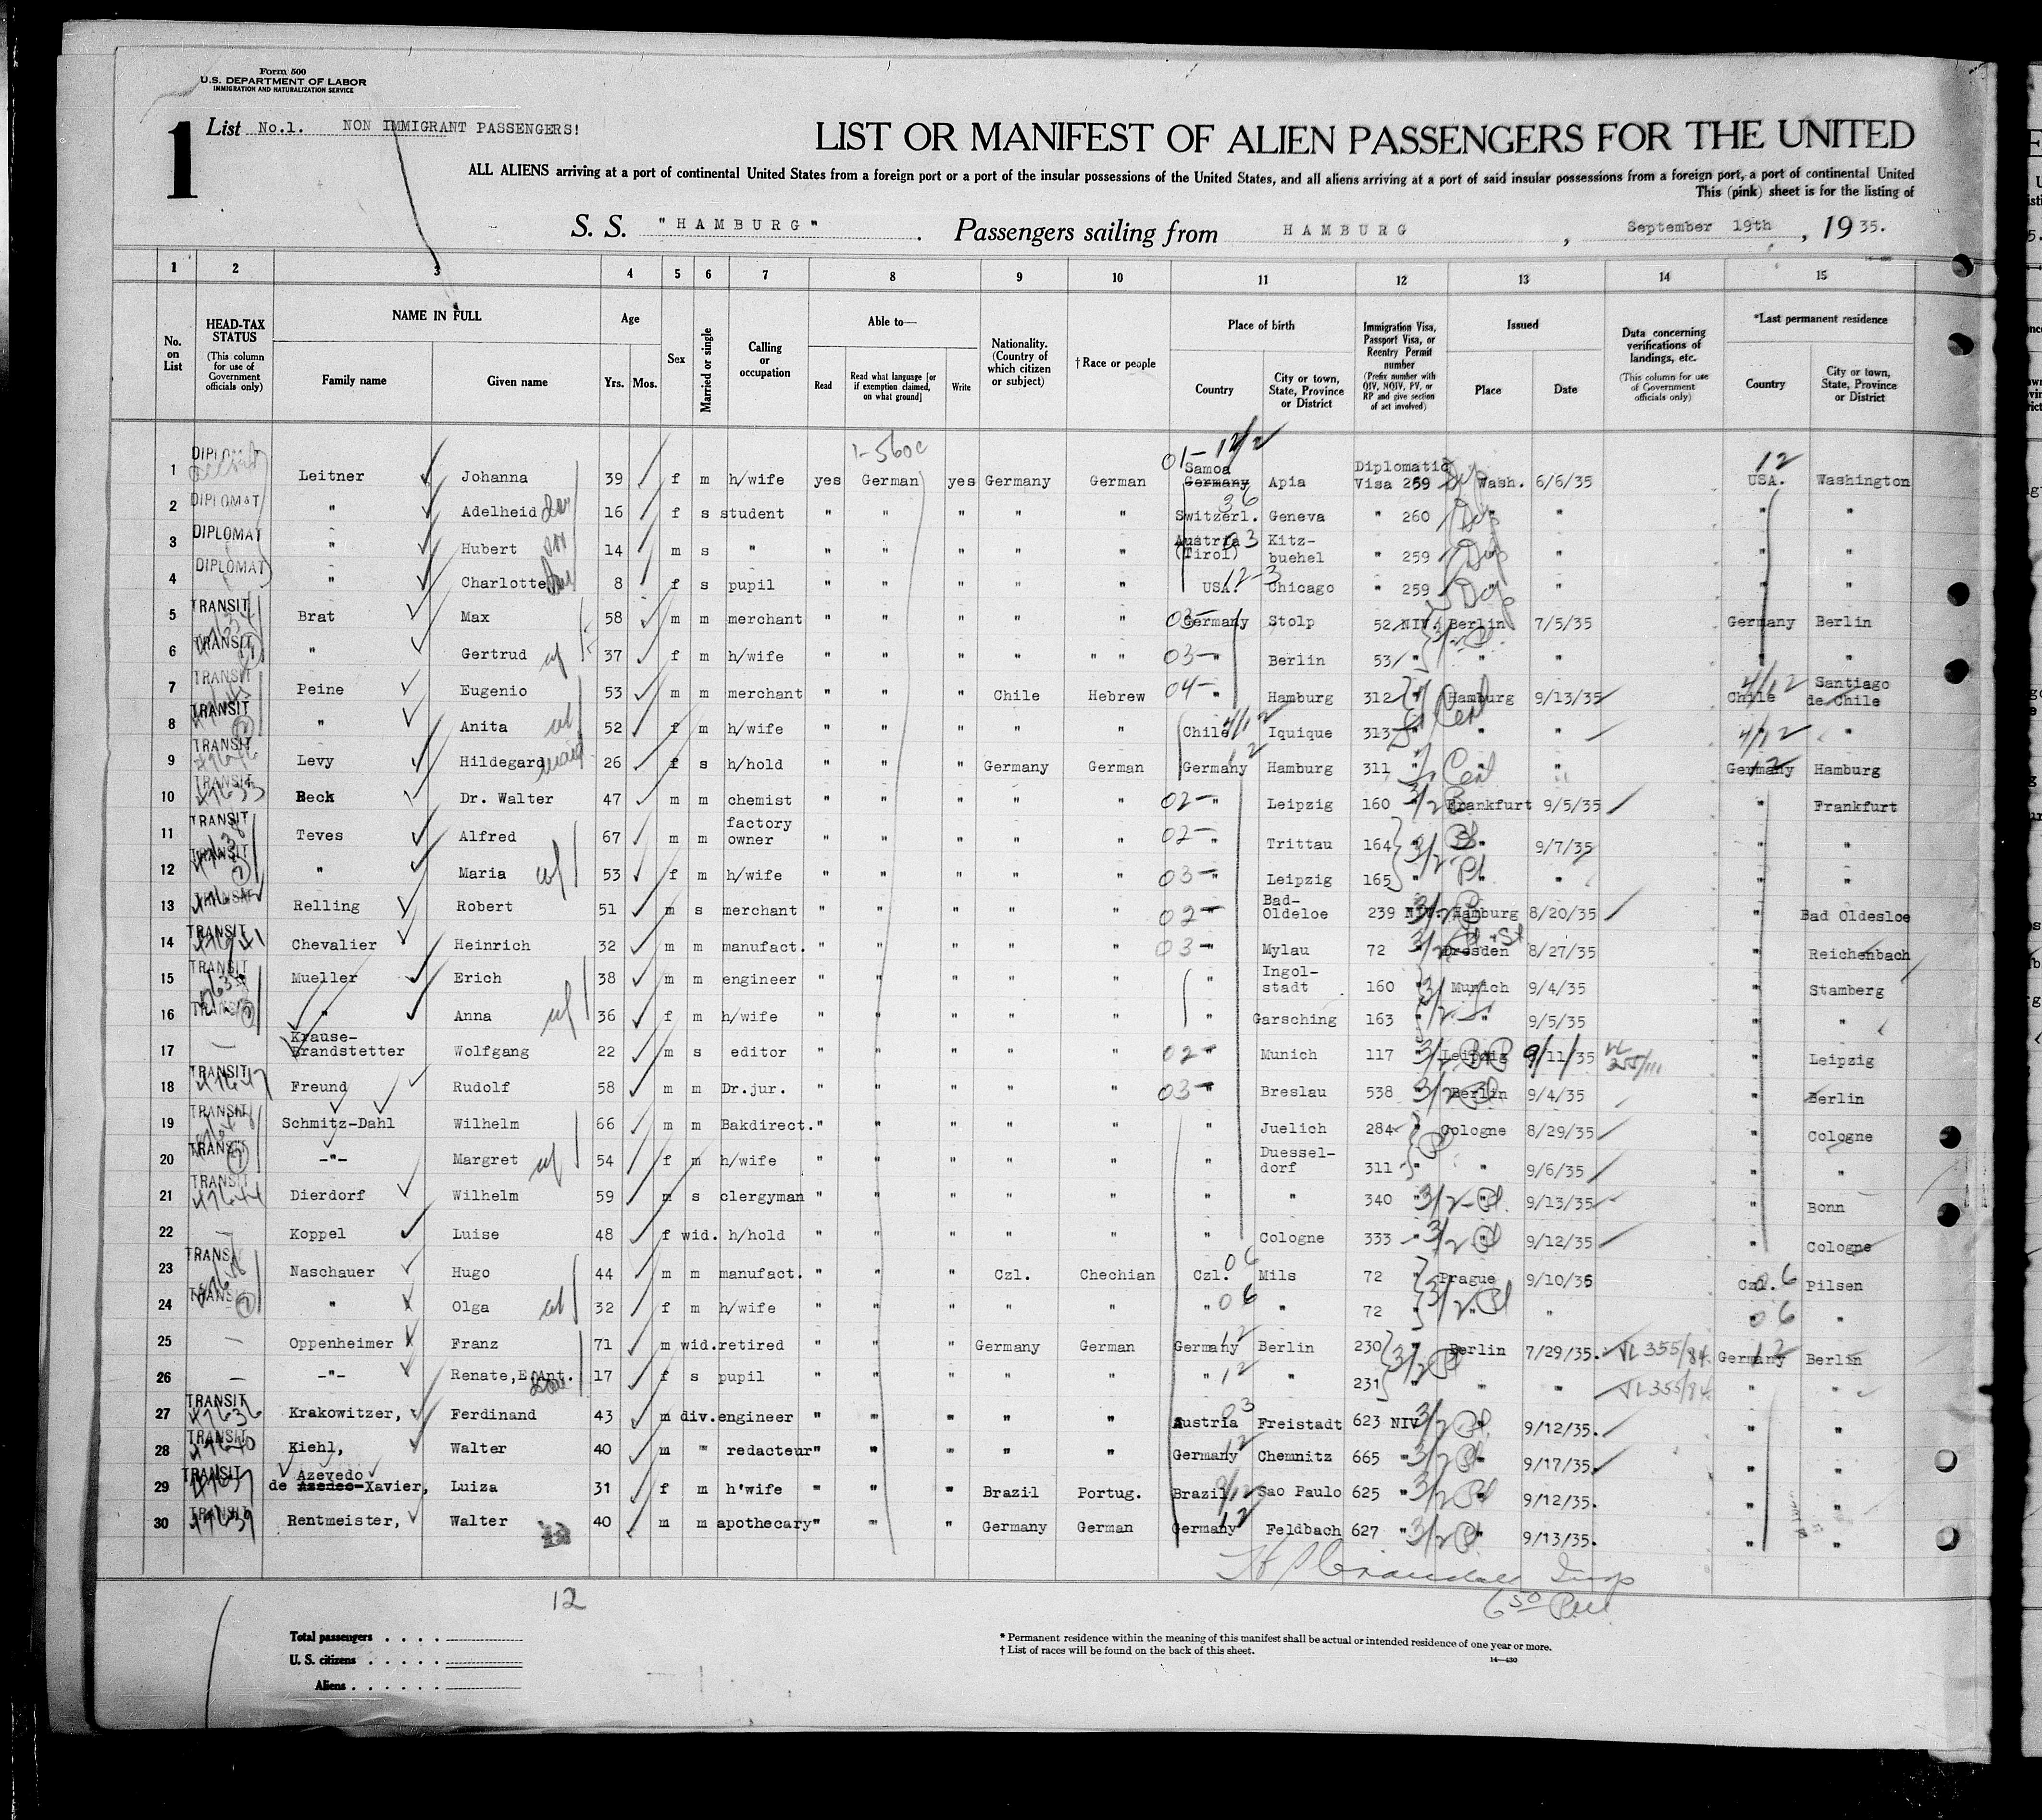 Form 500
U.S. DEPARTMENT OF LABOR
IMMIGRATION AND NATURALIZATION SERVICE
1 List No.1. NON IMMIGRANT PASSENGERS!
LIST OR MANIFEST OF ALIEN PASSENGERS FOR THE UNITED
ALL ALIENS arriving at a port of continental United States from a foreign port or a port of the insular possessions of the United States, and all aliens arriving at a port of said insular possessions from a foreign port, a port of continental United
This (pink) sheet is for the listing of
S. S. "HAMBURG" . Passengers sailing from HAMBURG , September 19th , 1935.
1 2 3 4 5 6 7 8 9 10 11 12 13 14 15
No. on List
HEAD-TAX STATUS (This column for use of Government officials only)
NAME IN FULL Family name Given name
Age Yrs. Mos.
Sex
Married or single
Calling or occupation
Able to— Read Read what language [or if exemption claimed, on what ground] Write
Nationality. (Country of which citizen or subject)
†Race or people
Place of birth Country City or town, State, Province or District
Immigration Visa, Passport Visa, or Reentry Permit number (Prefix number with QIV, NQIV, PV, or RP and give section of act involved)
Issued Place Date
Data concerning verifications of landings, etc. (This column for use of Government officials only)
*Last permanent residence Country City or town, State, Province or District
1 DIPLOMAT Leitner Johanna 39 f m h/wife yes German yes Germany German Samoa Germany Apia Diplomatic Visa 259 Wash. 6/6/35 USA. Washington
2 DIPLOMAT " Adelheid 16 f s student " " " " " Switzerl. Geneva " 260 " " " "
3 DIPLOMAT " Hubert 14 m s " " " " " " Austria (Tirol) Kitz-buehel " 259 " " " "
4 DIPLOMAT " Charlotte 8 f s pupil " " " " " USA. Chicago " 259 " " " "
5 TRANSIT Brat Max 58 m m merchant " " " " " Germany Stolp 52 NIV. Berlin 7/5/35 Germany Berlin
6 TRANSIT " Gertrud wf 37 f m h/wife " " " " " " " Berlin 53 " " " " "
7 TRANSIT Peine Eugenio 53 m m merchant " " " Chile Hebrew " Hamburg 312 " Hamburg 9/13/35 Chile Santiago de Chile
8 TRANSIT " Anita wf 52 f m h/wife " " " " " Chile Iquique 313 " " " " "
9 TRANSIT Levy Hildegard maid 26 f s h/hold " " " Germany German Germany Hamburg 311 " " " Germany Hamburg
10 TRANSIT Beck Dr. Walter 47 m m chemist " " " " " " Leipzig 160 " Frankfurt 9/5/35 " Frankfurt
11 TRANSIT Teves Alfred 67 m m factory owner " " " " " " Trittau 164 " " 9/7/35 " "
12 TRANSIT " Maria wf 53 f m h/wife " " " " " " Leipzig 165 " " " " "
13 TRANSIT Relling Robert 51 m s merchant " " " " " " Bad-Oldeloe 239 NIV. Hamburg 8/20/35 " Bad Oldesloe
14 TRANSIT Chevalier Heinrich 32 m m manufact. " " " " " " Mylau 72 " Dresden 8/27/35 " Reichenbach
15 TRANSIT Mueller Erich 38 m m engineer " " " " " " Ingol-stadt 160 " Munich 9/4/35 " Stamberg
16 TRANSIT " Anna wf 36 f m h/wife " " " " " " Garsching 163 " " 9/5/35 " "
17 — Krause-Brandstetter Wolfgang 22 m s editor " " " " " " Munich 117 " Leipzig 9/11/35 " Leipzig
18 TRANSIT Freund Rudolf 58 m m Dr.jur. " " " " " " Breslau 538 " Berlin 9/4/35 " Berlin
19 TRANSIT Schmitz-Dahl Wilhelm 66 m m Bakdirect. " " " " " " Juelich 284 " Cologne 8/29/35 " Cologne
20 TRANSIT -"- Margret wf 54 f m h/wife " " " " " " Duessel-dorf 311 " " 9/6/35 " "
21 TRANSIT Dierdorf Wilhelm 59 m s clergyman " " " " " " " 340 " " 9/13/35 " Bonn
22 — Koppel Luise 48 f wid. h/hold " " " " " " Cologne 333 " " 9/12/35 " Cologne
23 TRANSIT Naschauer Hugo 44 m m manufact. " " " Czl. Chechian Czl. Mils 72 " Prague 9/10/35 Czl. Pilsen
24 TRANSIT " Olga wf 32 f m h/wife " " " " " " " 72 " " " " "
25 — Oppenheimer Franz 71 m wid. retired " " " Germany German Germany Berlin 230 " Berlin 7/29/35. VL 355/84. Germany Berlin
26 — -"- Renate,E.Ant. 17 f s pupil " " " " " " " 231 " " " VL 355/84. " "
27 TRANSIT Krakowitzer, Ferdinand 43 m div. engineer " " " " " Austria Freistadt 623 NIV " 9/12/35. " "
28 TRANSIT Kiehl, Walter 40 m " redacteur " " " " " Germany Chemnitz 665 " " 9/17/35. " "
29 TRANSIT de Azevedo Azedeo-Xavier, Luiza 31 f m h'wife " " " Brazil Portug. Brazil Sao Paulo 625 " " 9/12/35. " "
30 TRANSIT Rentmeister, Walter 40 m m apothecary " " " Germany German Germany Feldbach 627 " " 9/13/35. " "
12
Total passengers
U. S. citizens
Aliens
* Permanent residence within the meaning of this manifest shall be actual or intended residence of one year or more.
† List of races will be found on the back of this sheet.
14—430